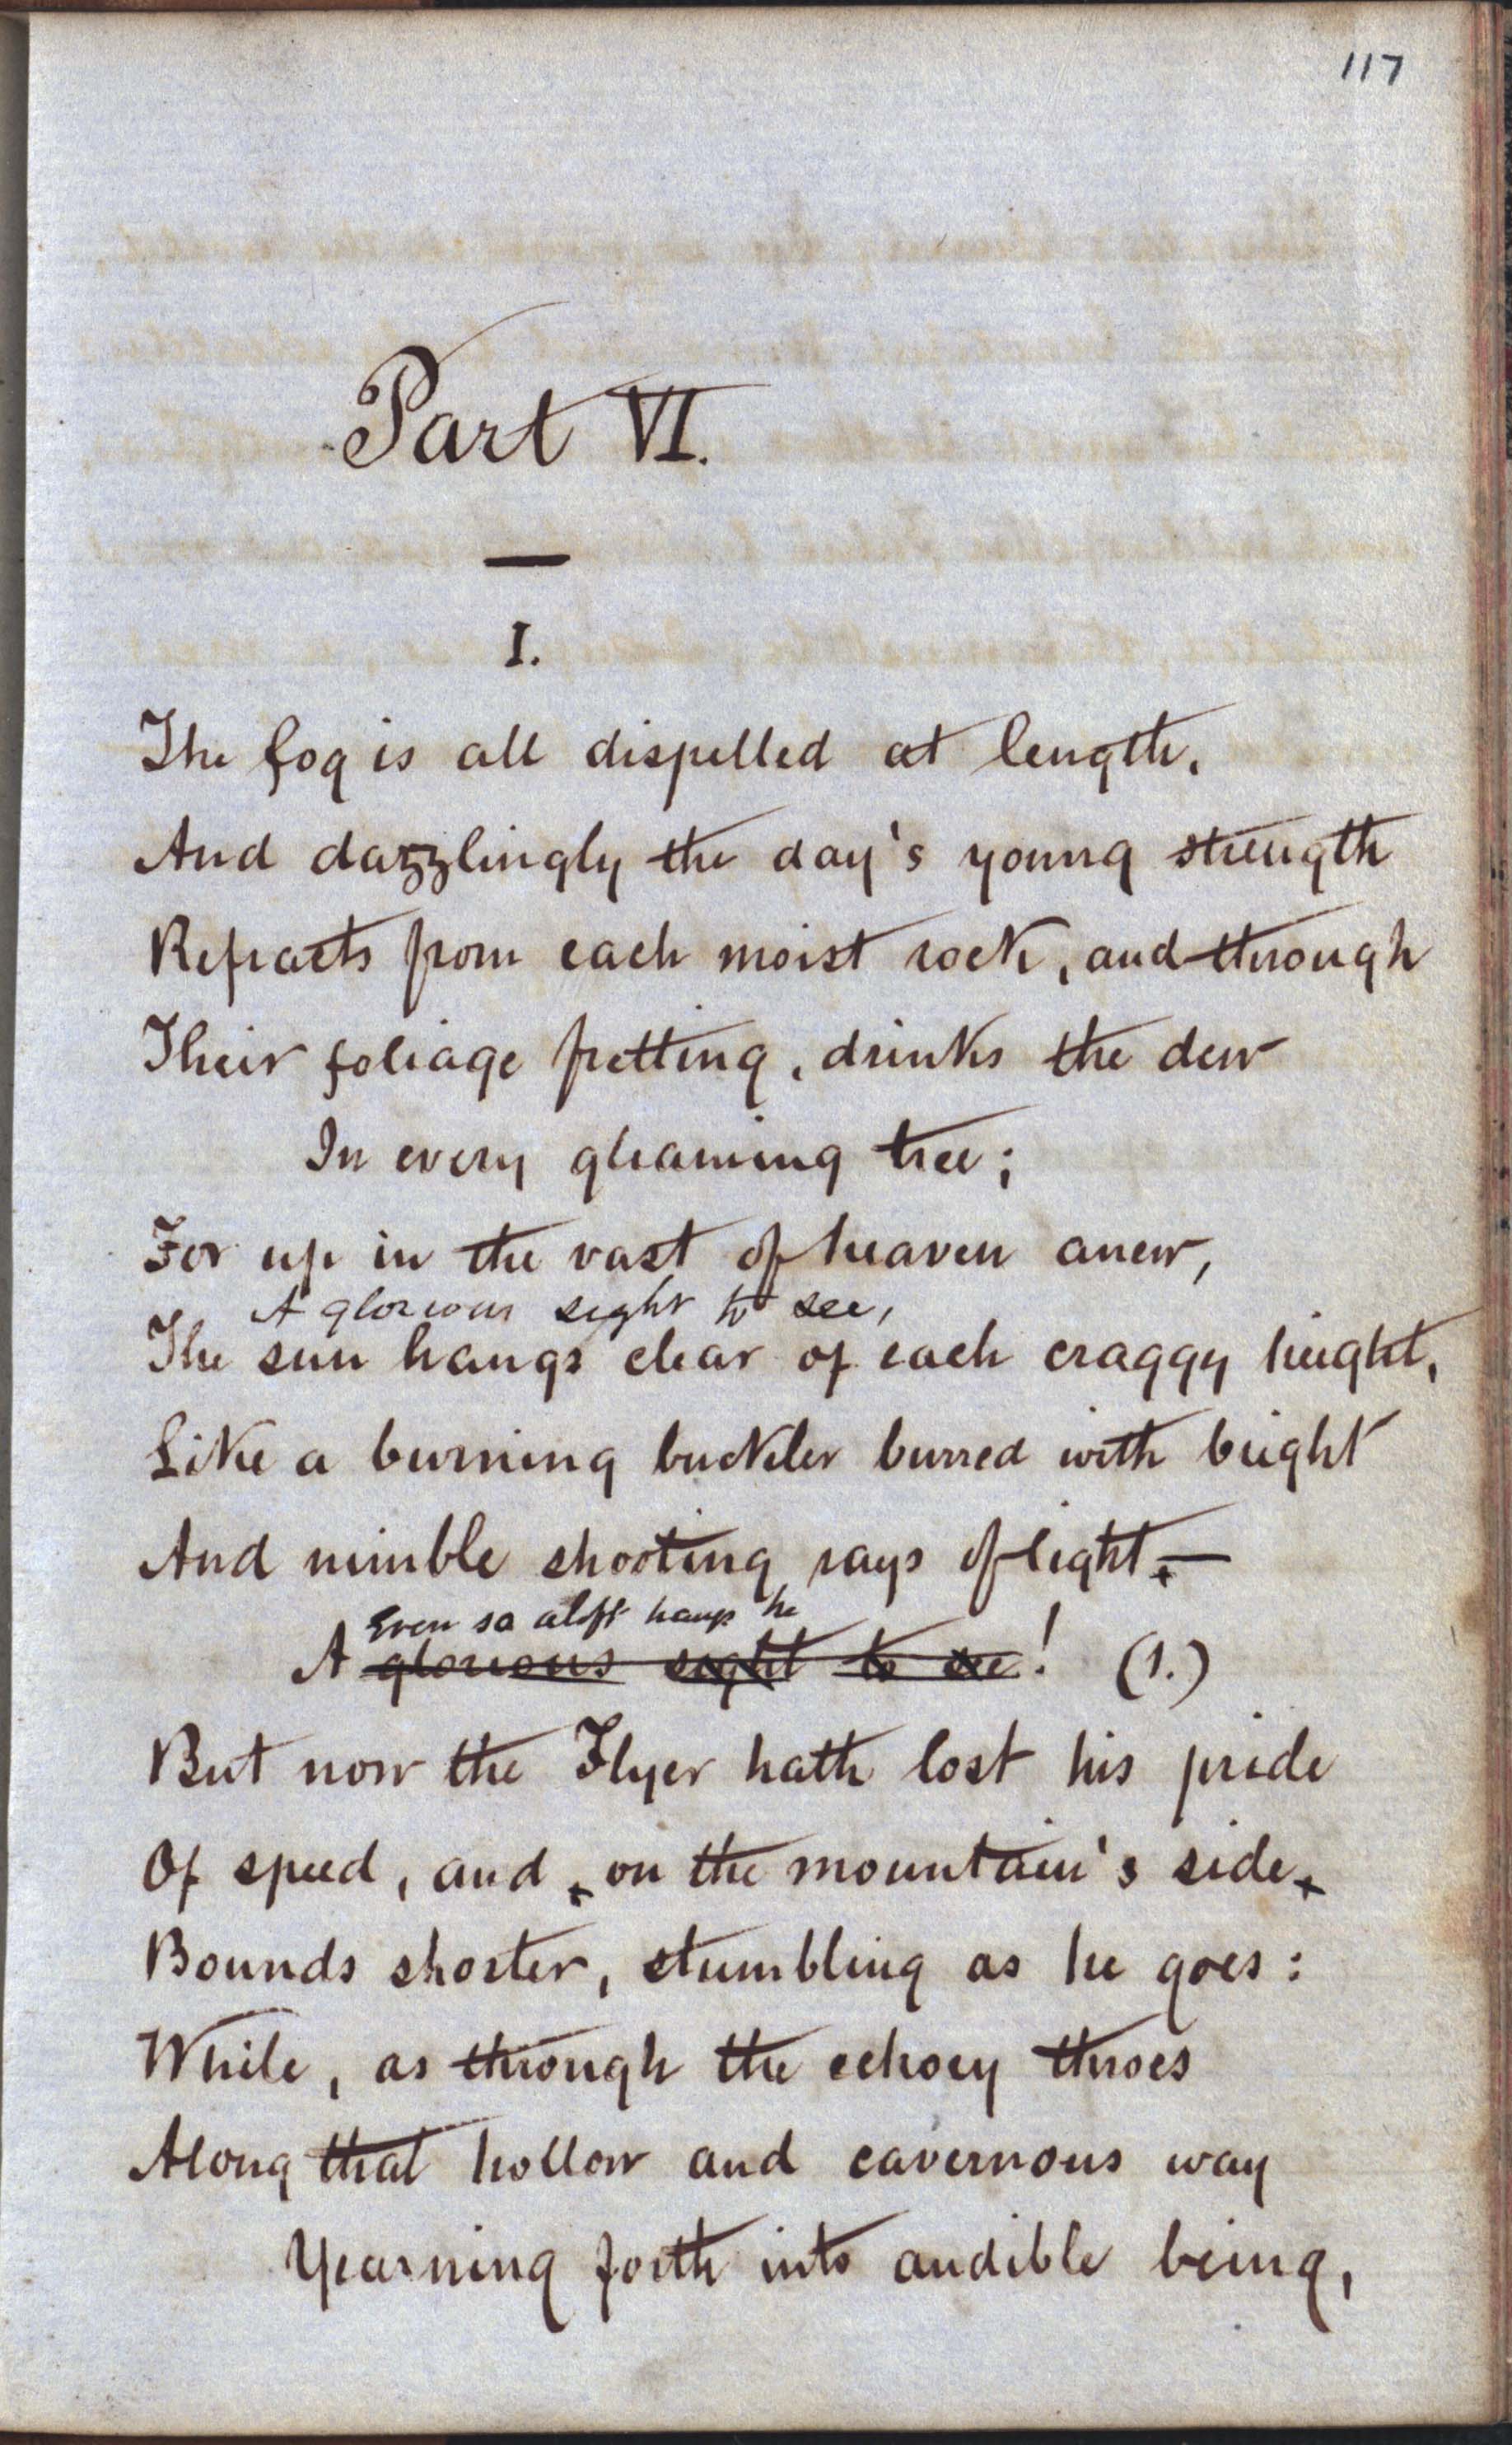 117
Part VI.
I.
The fog is all dispelled at length,
And dazzlingly the day's young strength
Refracts from each moist rock, and through
Their foliage fretting, drinks the dew
In every gleaming tree;
For up in the vast of heaven anew,
A glorious sight to see,
The sun hangs clear of each craggy height,
Like a burning buckler burred with bright
And nimble shooting rays of light,—
Even so aloft hangs he
A glorious sight to see! (1.)
But now the Flyer hath lost his pride
Of speed, and, on the mountain's side,
Bounds shorter, stumbling as he goes:
While, as through the echoey throes
Along that hollow and cavernous way
Yearning forth into audible being,